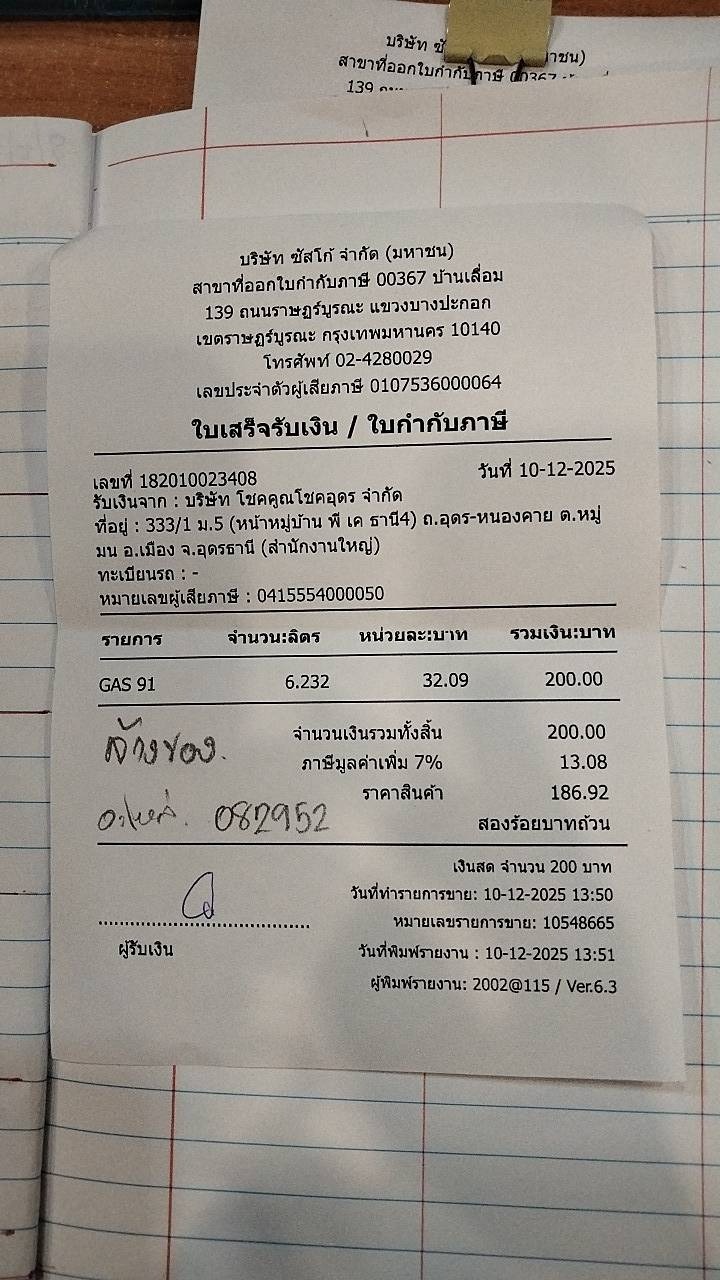 บริษัท ซั
าชน)
สาขาที่ออกใบกำกับภาษี 00367
139
บริษัท ซัสโก้ จำกัด (มหาชน)
สาขาที่ออกใบกำกับภาษี 00367 บ้านเลื่อม
139 ถนนราษฎร์บูรณะ แขวงบางปะกอก
เขตราษฎร์บูรณะ กรุงเทพมหานคร 10140
โทรศัพท์ 02-4280029
เลขประจำตัวผู้เสียภาษี 0107536000064
ใบเสร็จรับเงิน / ใบกำกับภาษี
เลขที่ 182010023408 วันที่ 10-12-2025
รับเงินจาก : บริษัท โชคคูณโชคอุดร จำกัด
ที่อยู่ : 333/1 ม.5 (หน้าหมู่บ้าน พี เค ธานี4) ถ.อุดร-หนองคาย ต.หมู่
มน อ.เมือง จ.อุดรธานี (สำนักงานใหญ่)
ทะเบียนรถ : -
หมายเลขผู้เสียภาษี : 0415554000050
รายการ จำนวน:ลิตร หน่วยละ:บาท รวมเงิน:บาท
GAS 91 6.232 32.09 200.00
จำนวนเงินรวมทั้งสิ้น 200.00
ภาษีมูลค่าเพิ่ม 7% 13.08
ราคาสินค้า 186.92
082952 สองร้อยบาทถ้วน
เงินสด จำนวน 200 บาท
วันที่ทำรายการขาย: 10-12-2025 13:50
หมายเลขรายการขาย: 10548665
ผู้รับเงิน วันที่พิมพ์รายงาน : 10-12-2025 13:51
ผู้พิมพ์รายงาน: 2002@115 / Ver.6.3